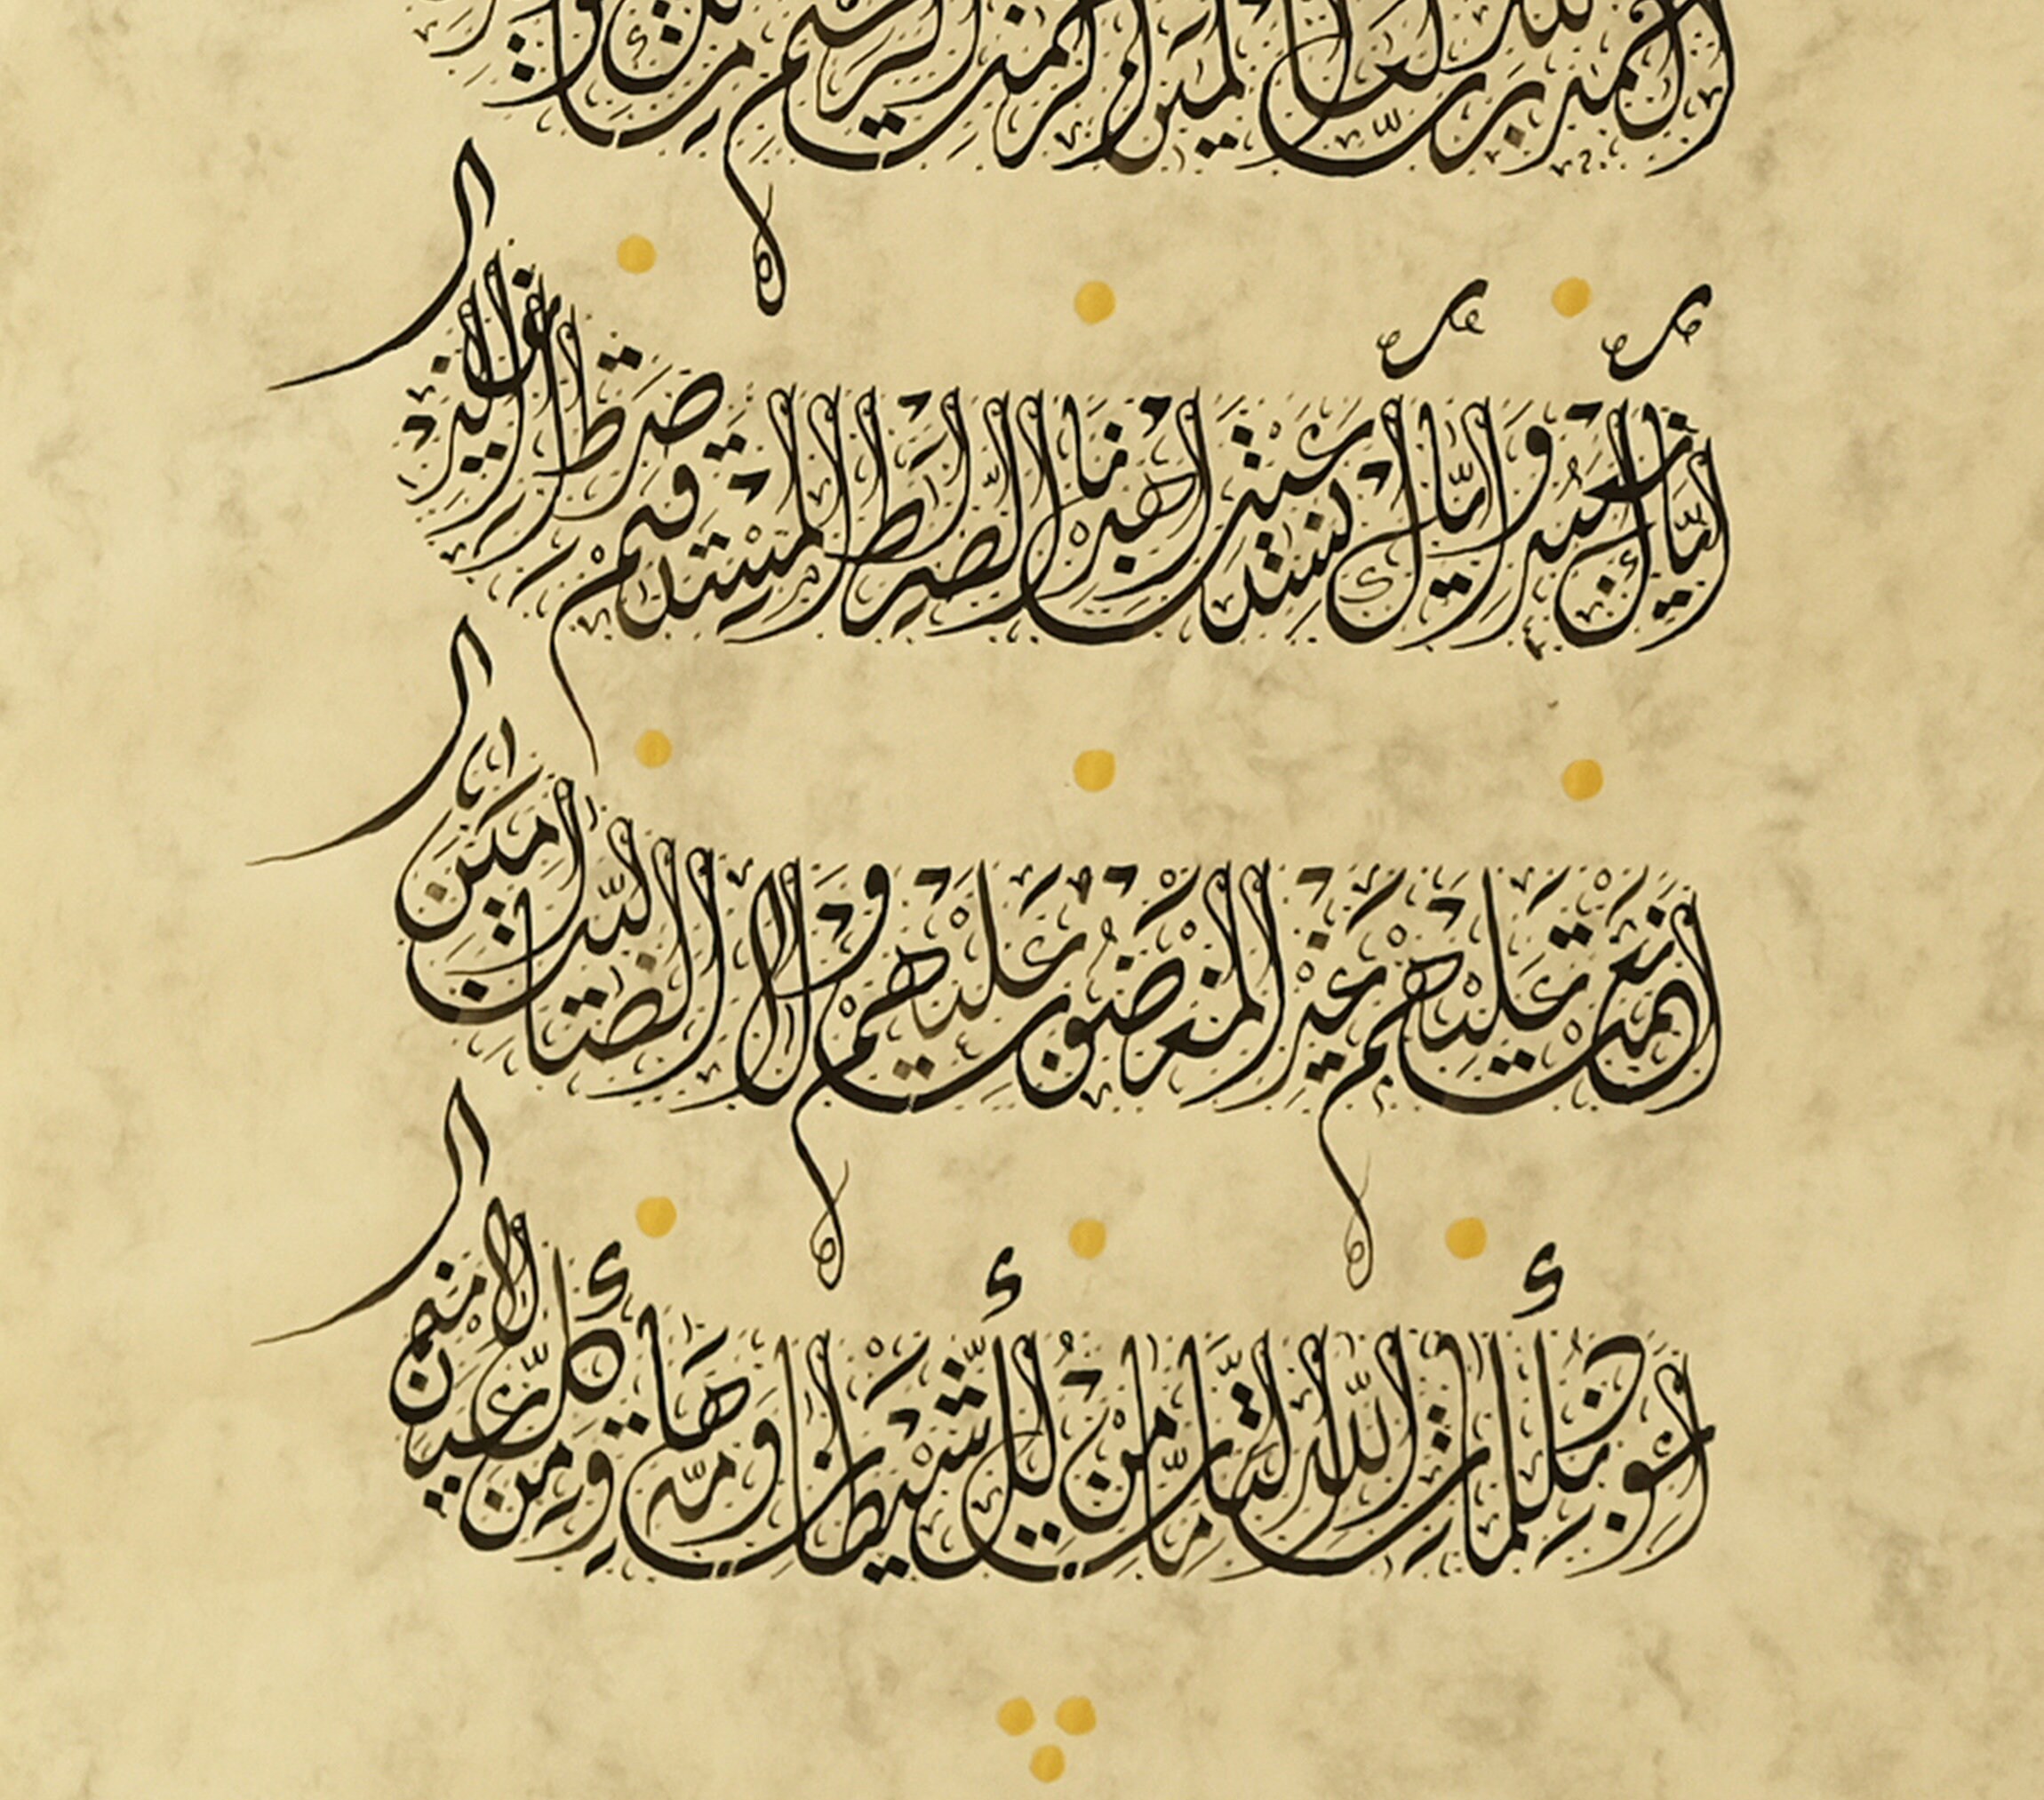 الحمد لله رب العالمين الرحمن الرحيم ملك
إياك نعبد وإياك نستعين اهدنا الصراط المستقيم صراط الذين
أنعمت عليهم غير المغضوب عليهم ولا الضالين آمين
أعوذ بكلمات الله التامات من كل شيطان وهامة ومن كل عين